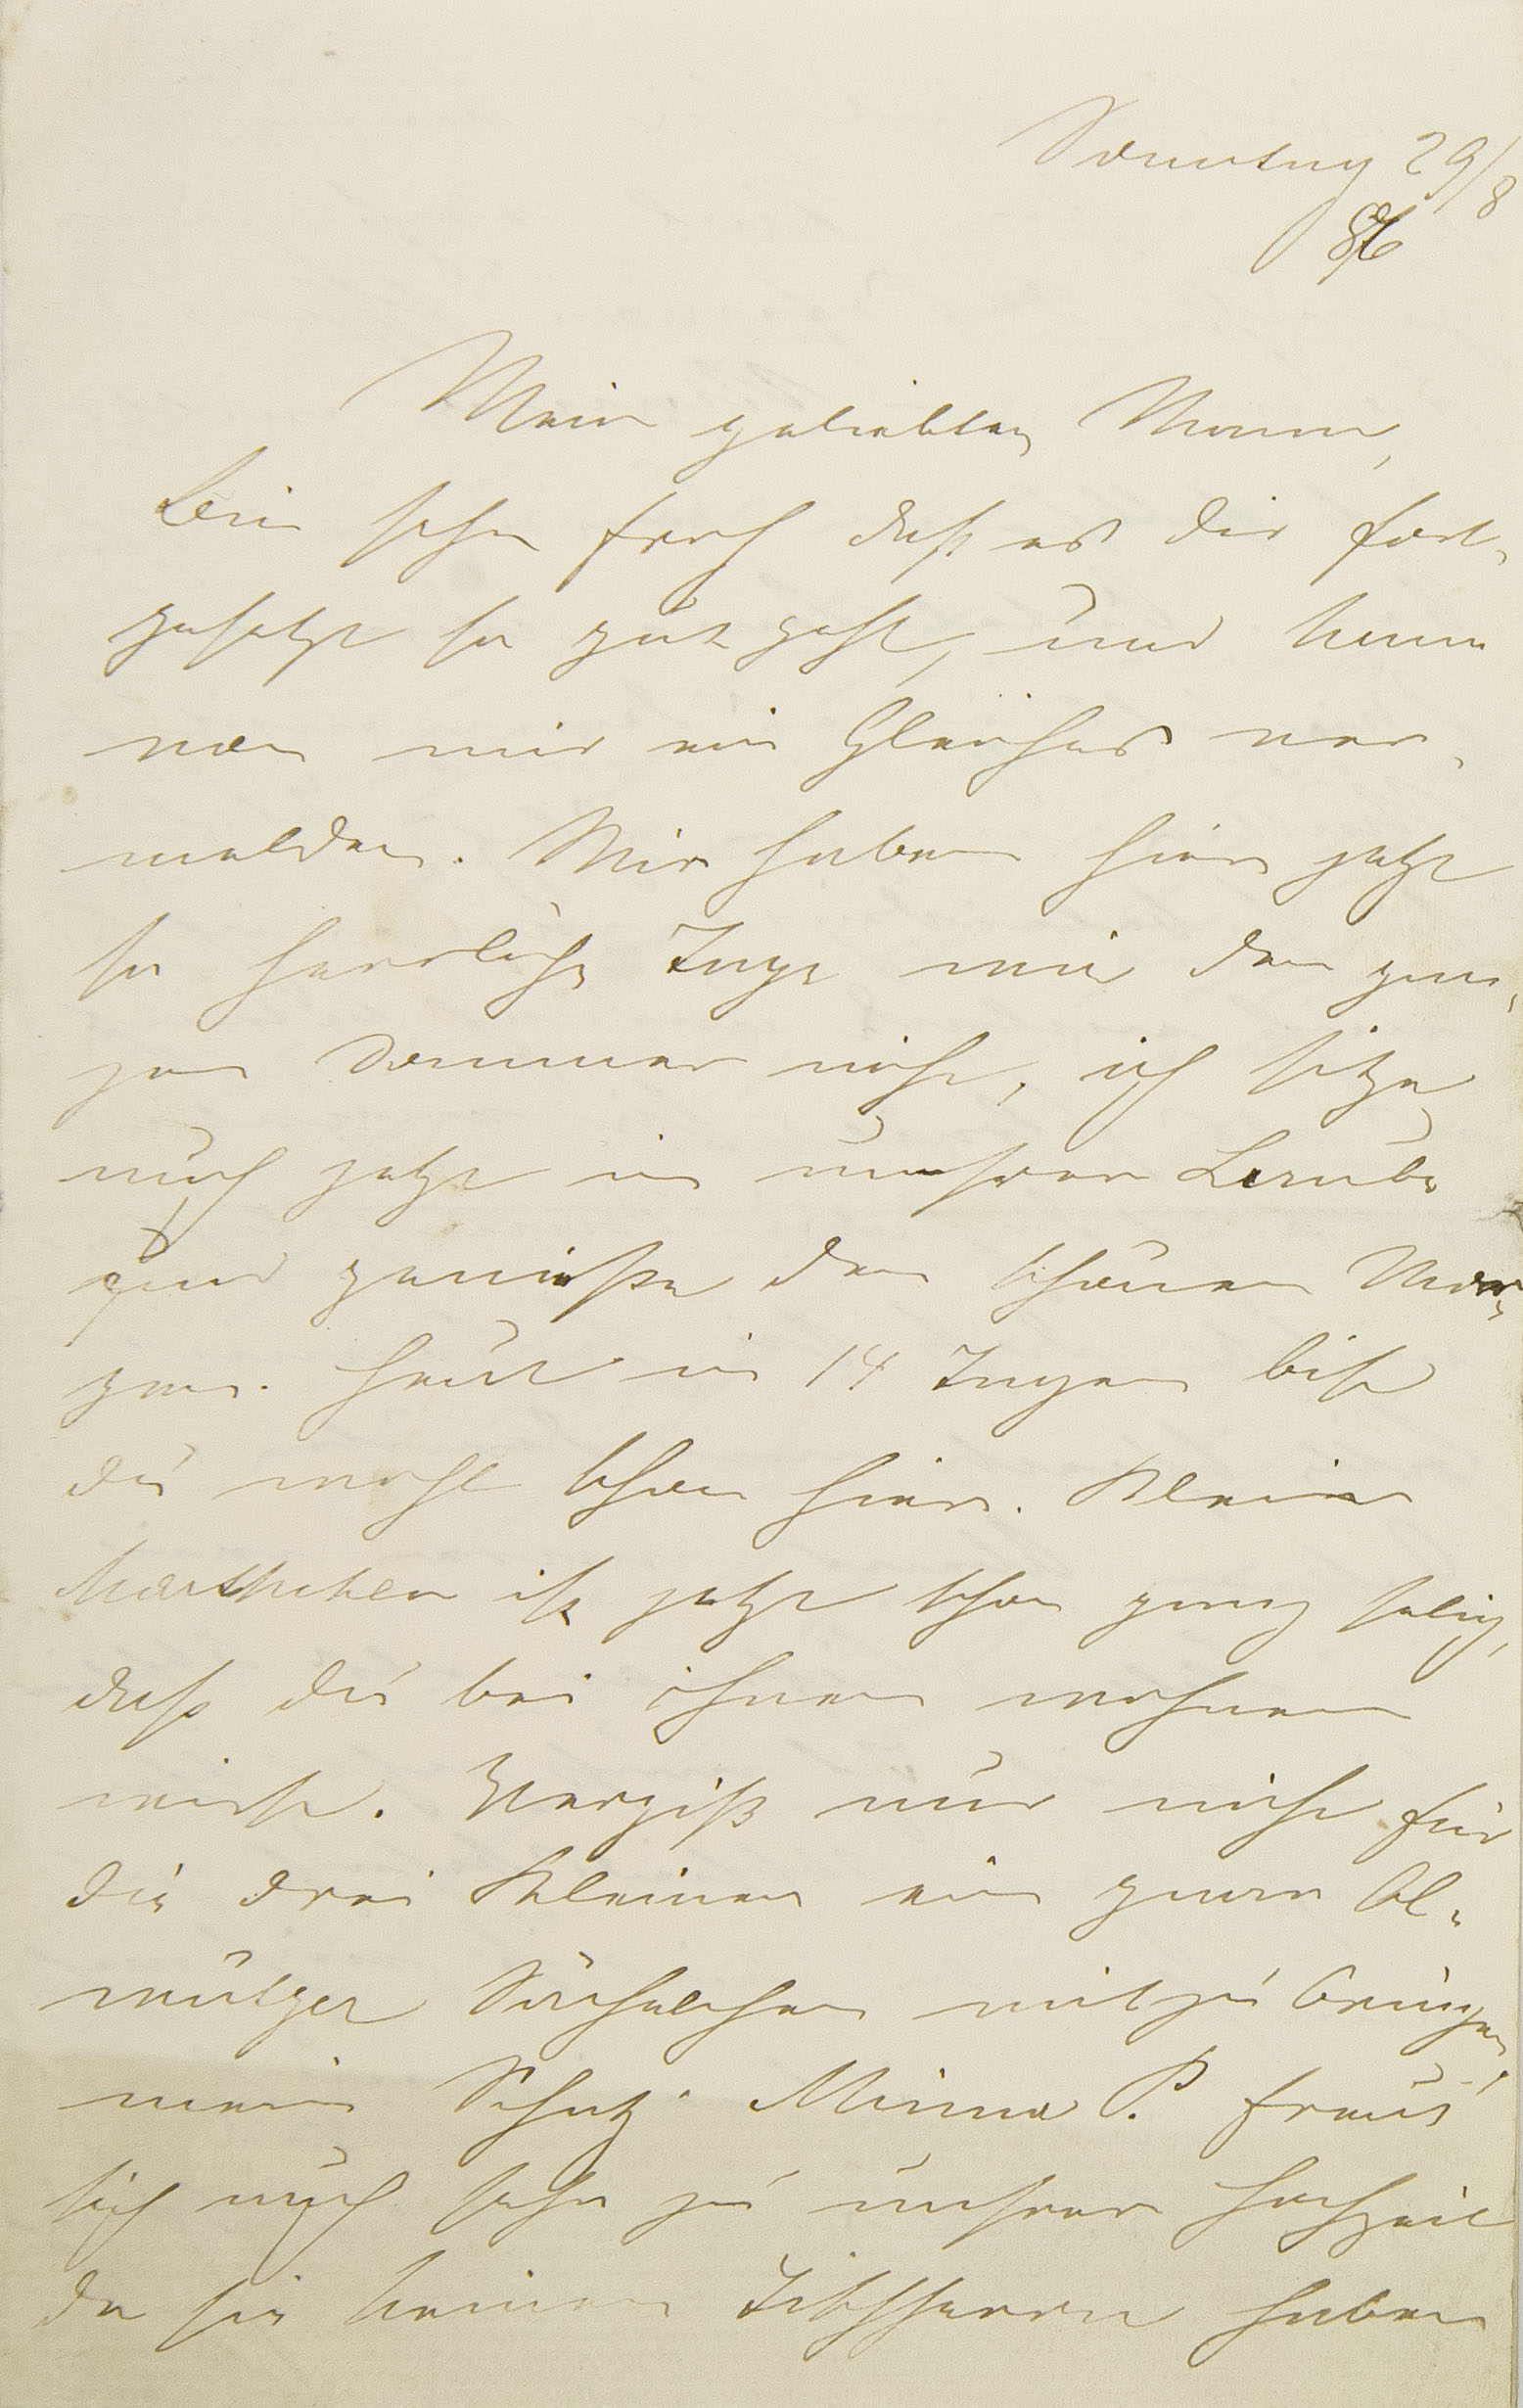 Sonntag 29/8
86
Mein geliebter Mann,
Bin sehr froh daß es dir fort-
gesetzt so gut geht, und kann
von mir ein Gleiches ver-
melden. Wir haben hier jetzt
so herrliche Tage wie den gan-
zen Sommer nicht, ich sitze
auch jetzt in unsrer Laube
und genieße den schönen Mor-
gen. Heut in 14 Tagen bist
du wohl schon hier. Klein
Marthchen ist jetzt schon ganz selig,
daß du bei ihnen wohnen
wirst. Vergiß nur nicht für
die drei Kleinen ein paar Ol-
mützer Sächelchen mitzu bringen,
mein Schatz. Minna P. freut
sich auch sehr zu unsrer Hochzeit
da sie keinen Tischherrn haben